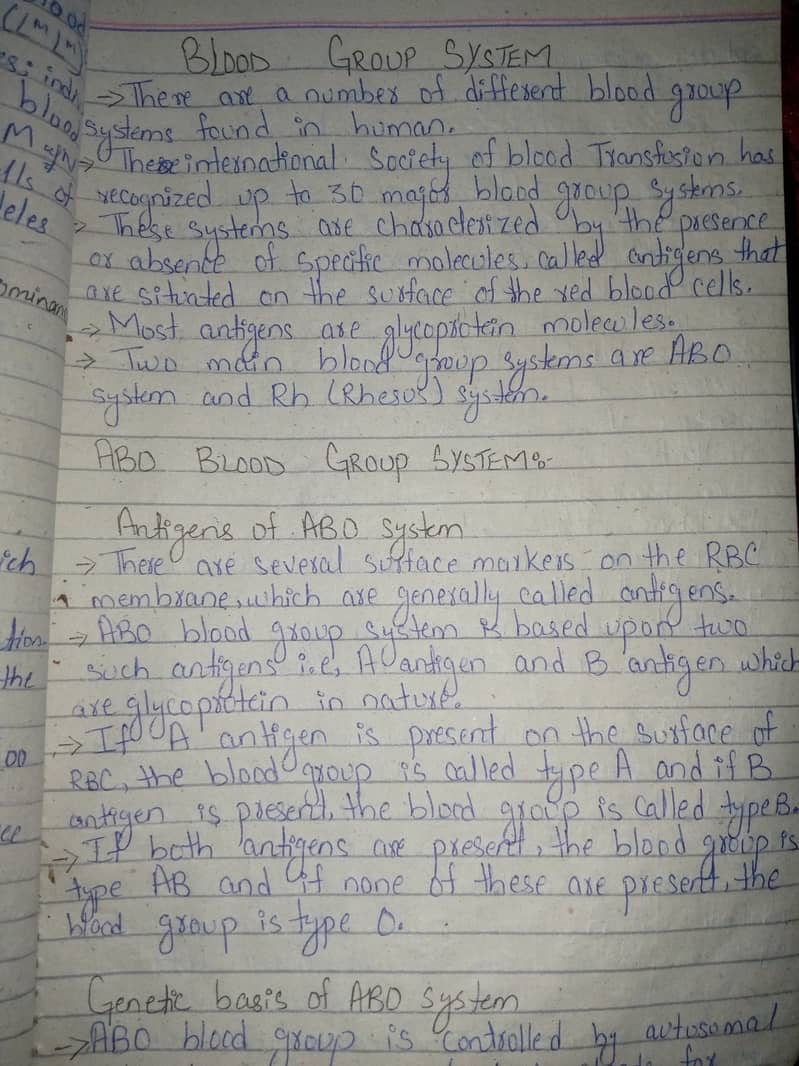 BLOOD GROUP SYSTEM
→ There are a number of different blood group
systems found in human.
→ These international Society of blood Transfusion has
recognized up to 30 major blood group systems.
→ These systems are characterized by the presence
or absence of specific molecules, called antigens that
are situated on the surface of the red blood cells.
→ Most antigens are glycoprotein molecules.
→ Two main blood group systems are ABO
system and Rh (Rhesus) system.
ABO BLOOD GROUP SYSTEM:-
Antigens of ABO system
→ There are several surface markers on the RBC
membrane, which are generally called antigens.
→ ABO blood group system is based upon two
such antigens i.e, A antigen and B antigen which
are glycoprotein in nature.
→ If A antigen is present on the surface of
RBC, the blood group is called type A and if B
antigen is present, the blood group is called type B.
→ If both antigens are present, the blood group is
type AB and if none of these are present, the
blood group is type O.
Genetic basis of ABO system
→ ABO blood group is controlled by autosomal
for